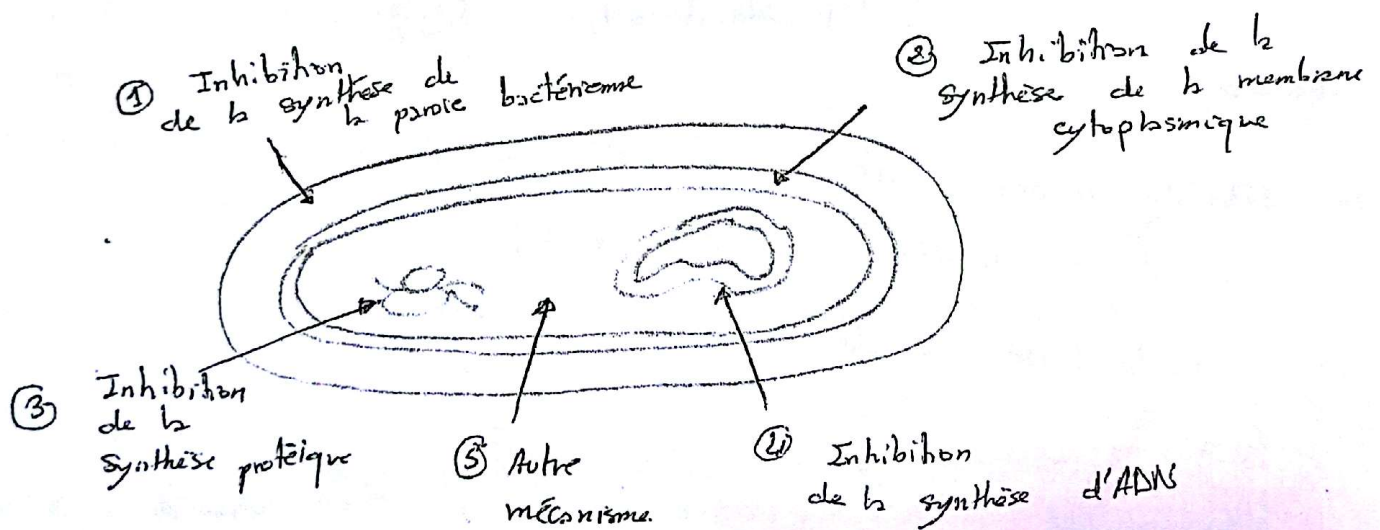 ① Inhibition
de la synthèse de
la paroie bactérienne
② Inhibition de la
synthèse de la membrane
cytoplasmique
③ Inhibition
de la
synthèse protéique
⑤ Autre
mécanisme.
④ Inhibition
de la synthèse d'ADN